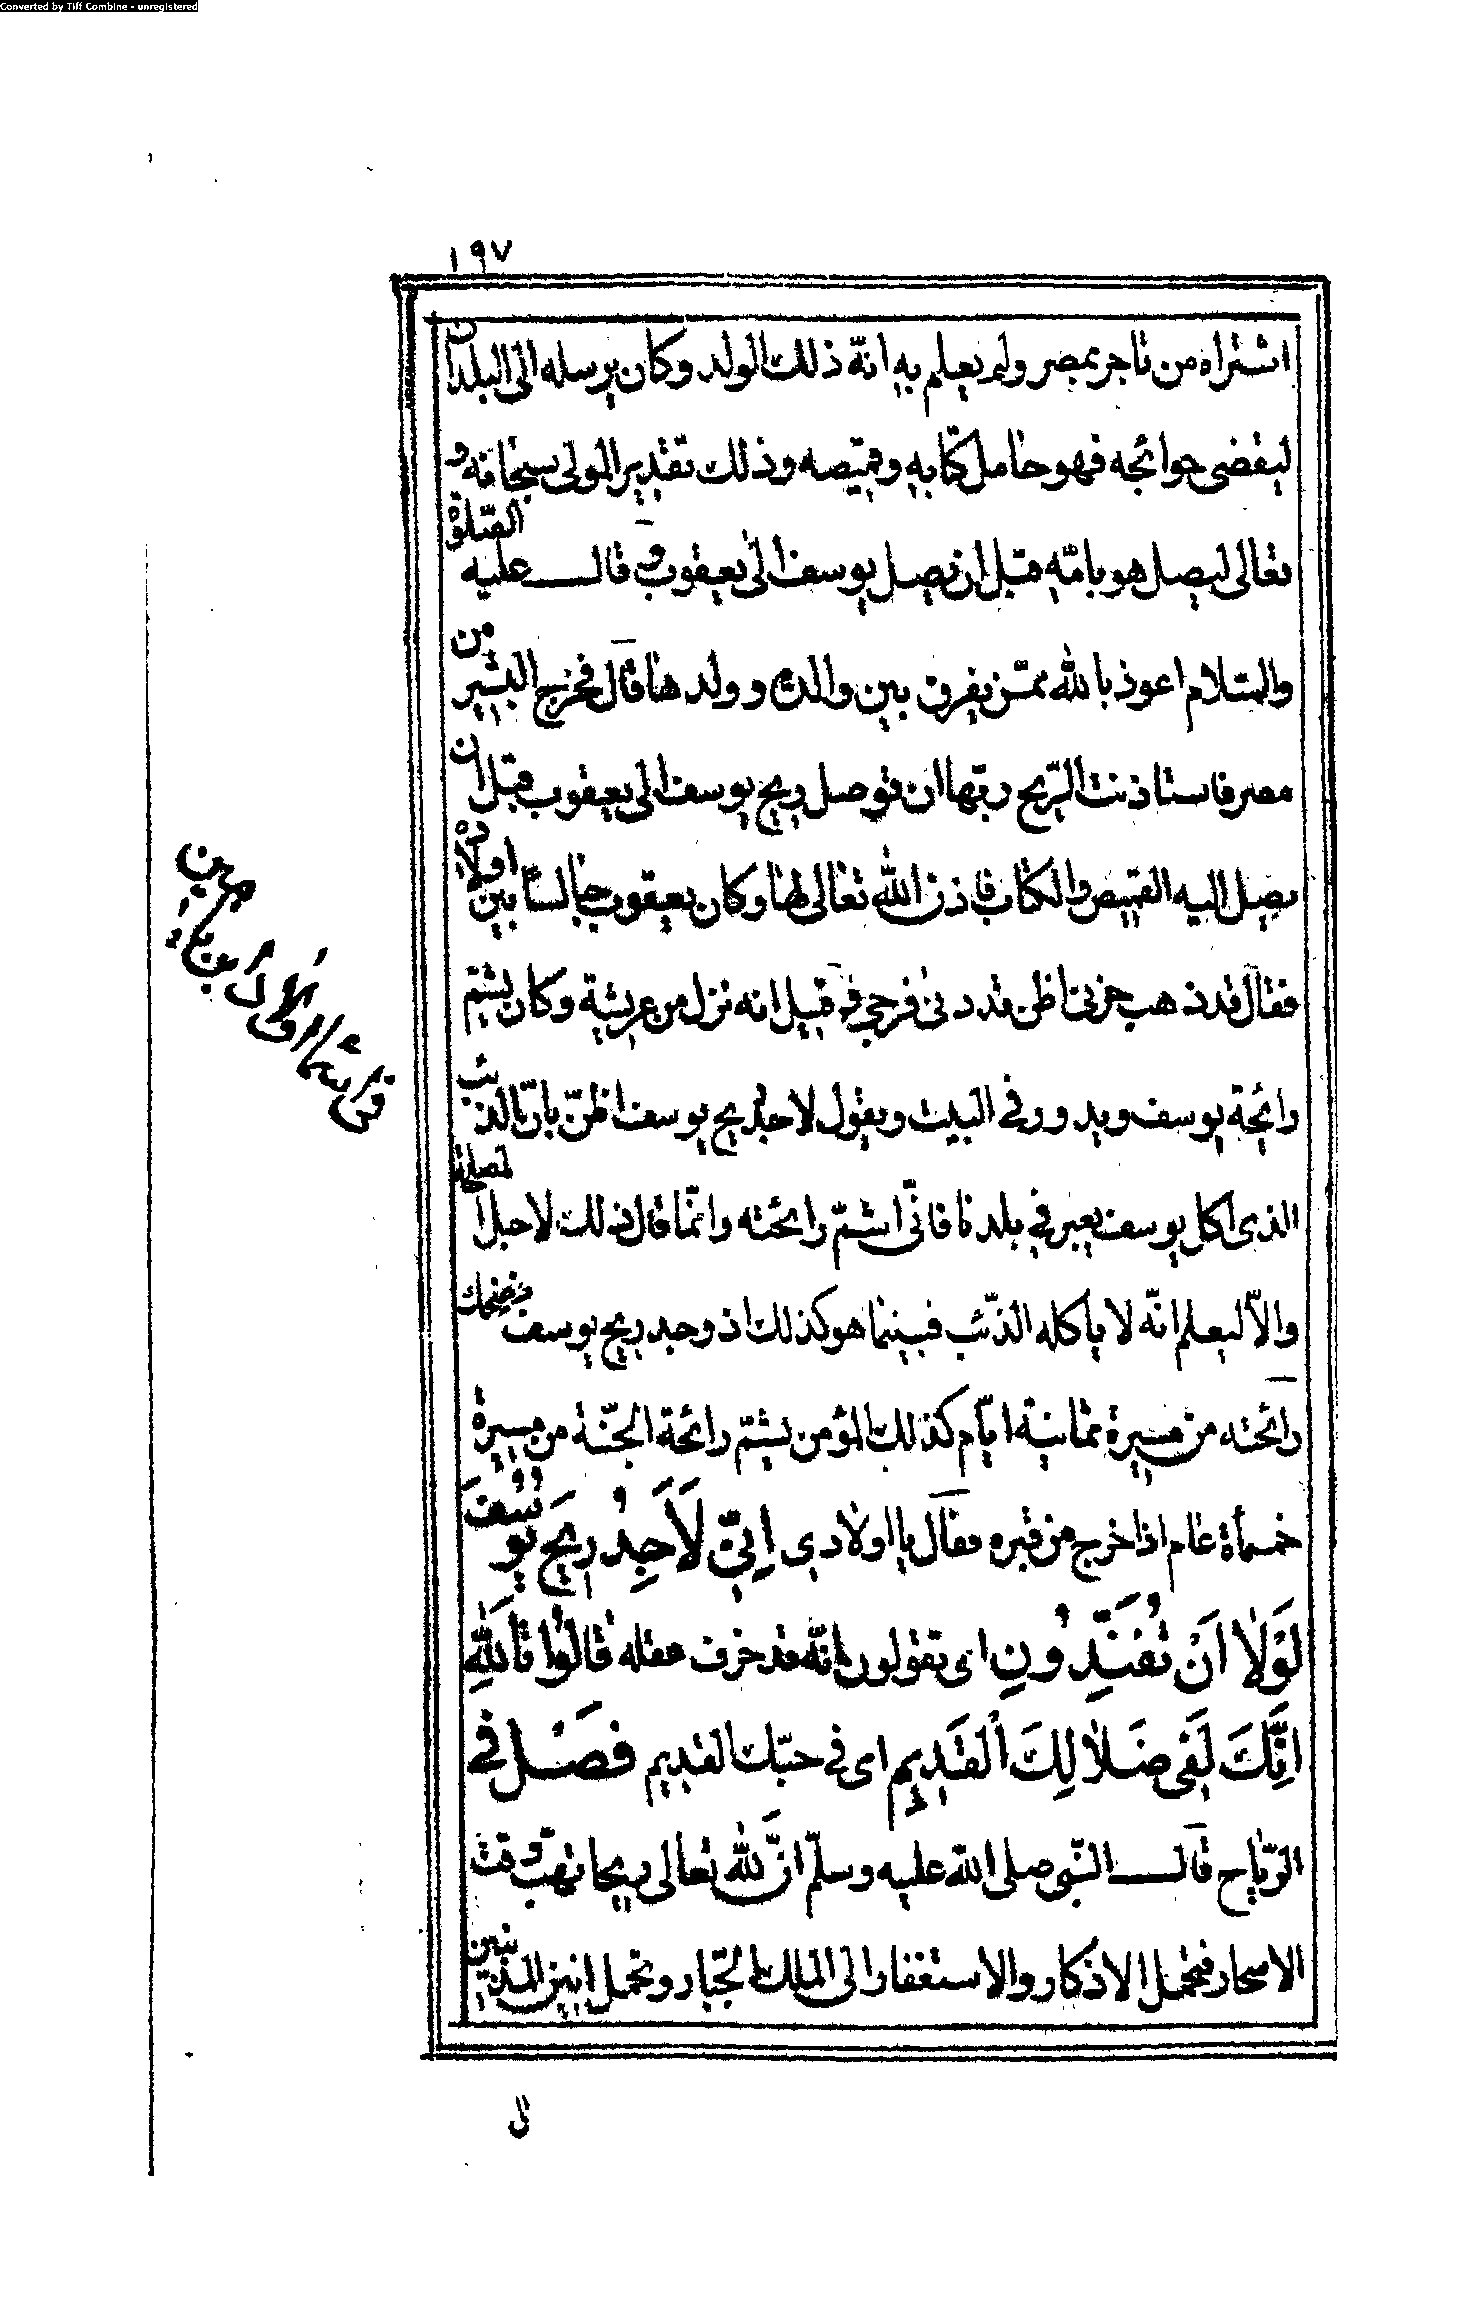 Converted by Tiff Combine - unregistered
١٩٧
اشتراه من تاجر بمصر ولم يعلم به انّه ذلك الولد وكان يرسله الى البلدان
ليقضى حوائجه فهو حامل كتابه وقميصه وذلك تقدير المولى سبحانه و
تعالى ليصل هو بامّه قبل ان يصل يوسف الى يعقوب وقال عليه الصّلوة
والسّلام اعوذ بالله ممّن يفرق بين والدة وولدها قال فخرج البشير من
مصر فاستاذنت الرّيح ربّها ان توصل ريح يوسف الى يعقوب قبل ان
يصل اليه القميص والكتاب فاذن الله تعالى لها وكان يعقوب جالسًا بين اولاده
فقال قد ذهب حزنى اظن قد دنى فرجى قيل انه نزل من عريشة وكان يشتم
رائحة يوسف ويدور فى البيت ويقول لاجد ريح يوسف اظنّ بانّ الذئب
الذى اكل يوسف يعبر فى بلدنا فانّى اشتمّ رائحته وانّما قال ذلك لاجل المصلحة
والاّ ليعلم انّه لا يأكله الذّئب فبينما هو كذلك اذ وجد ريح يوسف فضحك
رائحته من مسيرة ثمانية ايّام كذلك المؤمن يشتمّ رائحة الجنّة من مسيرة
خمسمأة عام اذا خرج من قبره فقال يا اولادى اِنّى لَاَجِدُ رِيحَ يُوسُفَ
لَوْلَا اَنْ تُفَنِّدُونِ اى تقولون انّه قد خرف عقله قَالُوا تَاللهِ
اِنَّكَ لَفِى ضَلَالِكَ الْقَدِيمِ اى فى حبّك القديم فصل فى
الرّياح قال النّبى صلى الله عليه وسلّم انَّ لله تعالى ريحا تهبّ وقت
الاسحار فتحمل الاذكار والاستغفار الى الملك الجبّار وتحمل انين المذنبين